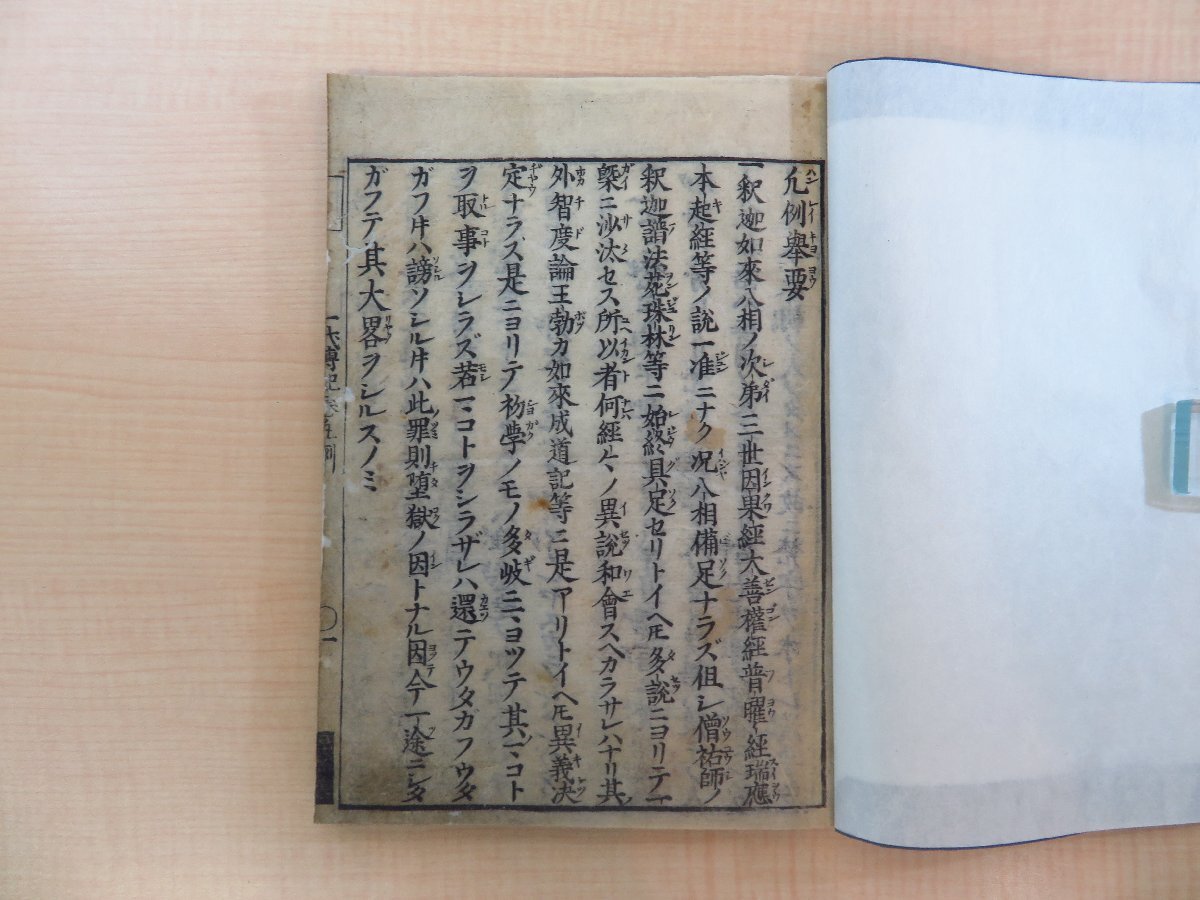 凡例舉要
一釈迦如來八相ノ次第三世因果經大善權經普曜經瑞應
本起經等ノ説一准ニナク况八相備足ナラズ但シ僧祐師ノ
釈迦譜法苑珠林等ニ始終具足セリトイヘ𪜈多説ニヨリテ一
槩ニ沙汰セス所以者何經々ノ異説和會スヘカラサレハナリ其
外智度論王勃カ如來成道記等ニ是アリトイヘ𪜈異義決
定ナラス是ニヨリテ初學ノモノ多岐ニヨツテ其一コト
ヲ取事ヲシレラズ若一コトヲシラザレハ還テウタガフウタ
ガフ𪜈ハ謗ソシル𪜈ハ此罪則堕獄ノ因トナル因今一途ニシタ
ガフテ其大畧ヲシルスノミ